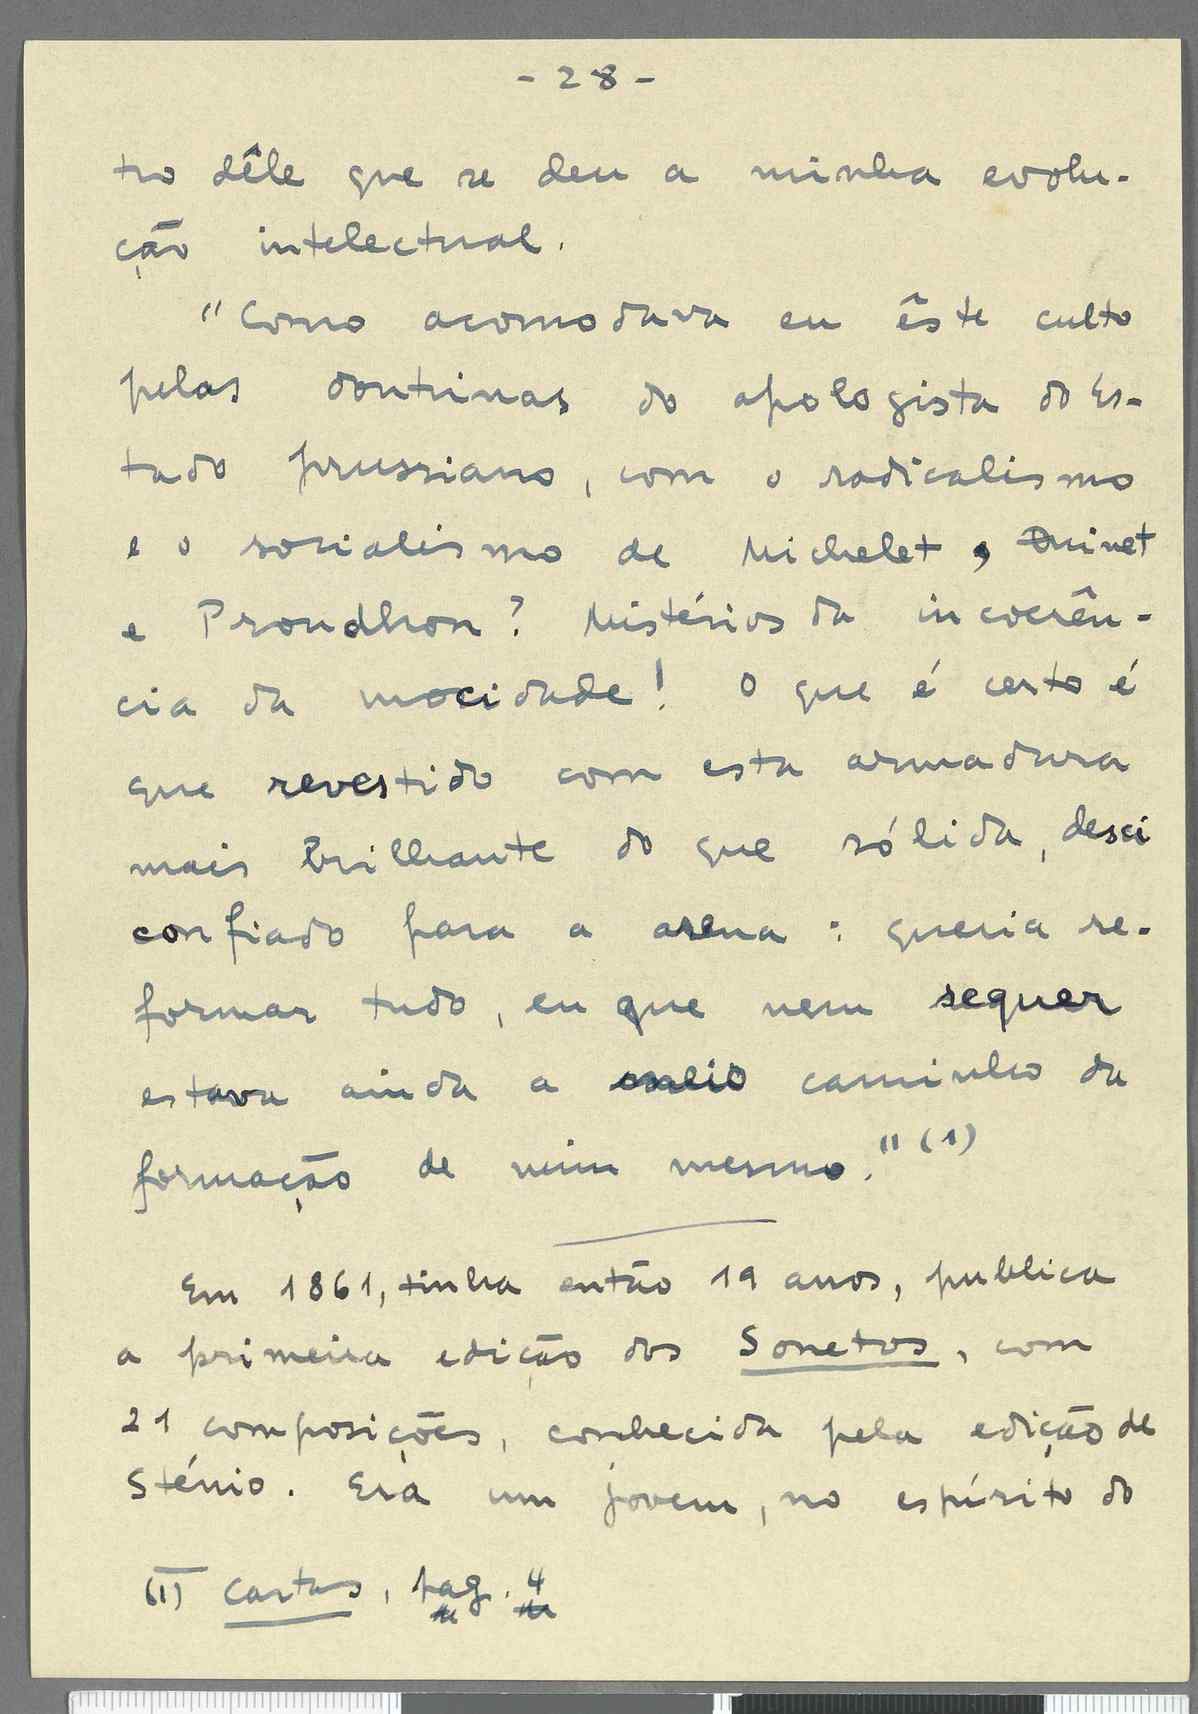 - 28 -
tro dêle que se deu a minha evolu-
ção intelectual.
"Como acomodava eu êste culto
pelas doutrinas do apologista do Es-
tado prussiano, com o radicalismo
e o socialismo de Michelet, Quinet
e Proudhon? Mistérios da incoerên-
cia da mocidade! O que é certo é
que revestido com esta armadura
mais brilhante do que sólida, desci
confiado para a arena: queria re-
formar tudo, eu que nem sequer
estava ainda a meio caminho da
formação de mim mesmo." (1)
Em 1861, tinha então 19 anos, publica
a primeira edição dos Sonetos, com
21 composições, conhecida pela edição de
Sténio. Era um jovem, no espírito do
(1) Cartas, pag. 4